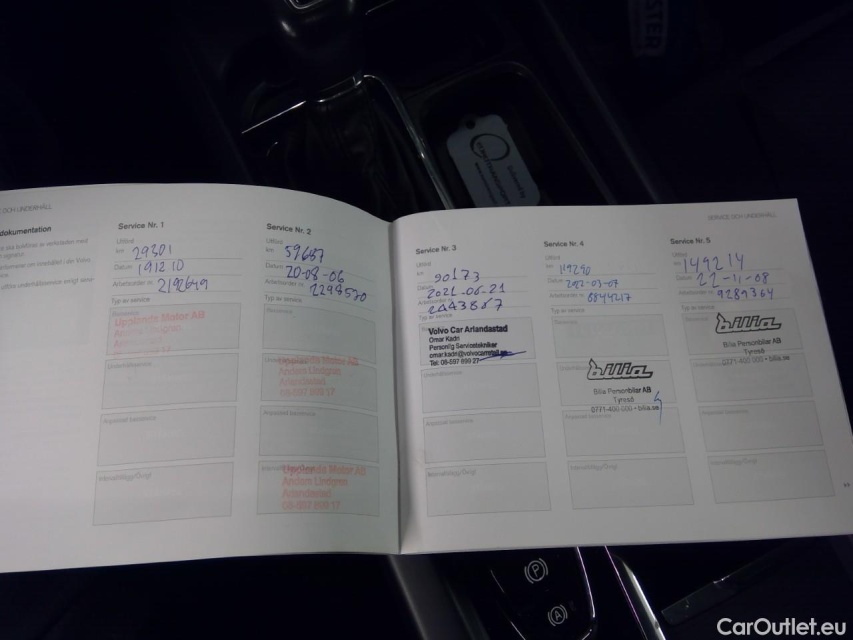 OCH UNDERHÅLL
dokumentation
Service Nr. 1
Utförd
km 29301
Datum 191210
Arbetsorder nr 2192649
Typ av service
Upplands Motor AB
Anders Lindgren
Service Nr. 2
Utförd
km 59687
Datum 20-08-06
Arbetsorder nr 2298570
Typ av service
Upplands Motor AB
Anders Lindgren
Arlandastad
08-597 899 17
Upplands Motor AB
Anders Lindgren
Arlandastad
08-597 899 17
Service Nr. 3
Utförd
km 90173
Datum 2021-06-21
2443867
Typ av service
Volvo Car Arlandastad
Omar Kadri
Personlig Servicetekniker
Tel: 08-597 899 27
Service Nr. 4
Utförd
km 119290
Datum 2022-03-07
Arbetsorder nr 8844217
Typ av service
bilia
Bilia Personbilar AB
Tyresö
0771-400 000 • bilia.se
SERVICE OCH UNDERHÅLL
Service Nr. 5
Utförd
149214
Datum 22-11-08
Arbetsorder nr 9289364
Typ av service
bilia
Bilia Personbilar AB
Tyresö
0771-400 000 • bilia.se
P
A
CarOutlet.eu